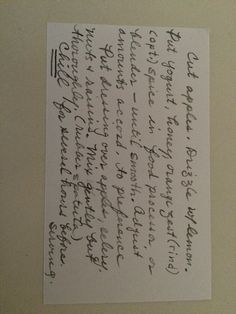 Cut apples. Drizzle w/ lemon.
Put yogurt, honey, orange zest (rind)
(opt) spice in food processor or
blender – until smooth. Adjust
amounts accord. to preference
Put dressing over apples, celery,
nuts & raisins. Mix gently but
thoroughly (rubber spatula)
Chill for several hours before
serving.